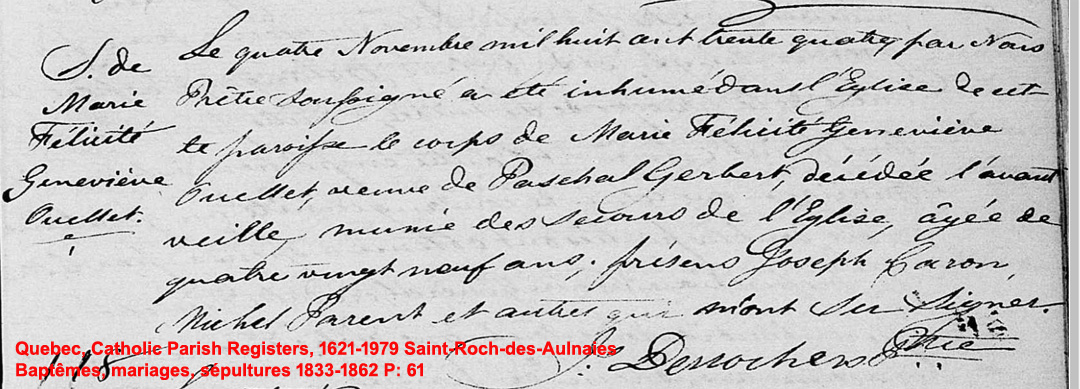 S. de
Marie
Félicité
Geneviève
Ouellet.
Le quatre Novembre mil huit cent trente quatre, par Nous
Prêtre soussigné a été inhumé dans l'Eglise de cet
te paroisse le corps de Marie Félicité Geneviève
Ouellet, veuve de Paschal Gerbert, décédée l'avant
veille munie des secours de l'Eglise, âgée de
quatre vingt neuf ans; présens Joseph Caron,
Michel Parent et autres qui n'ont su signer.
Desrochers Ptre
Quebec, Catholic Parish Registers, 1621-1979 Saint-Roch-des-Aulnaies
Baptêmes, mariages, sépultures 1833-1862 P: 61